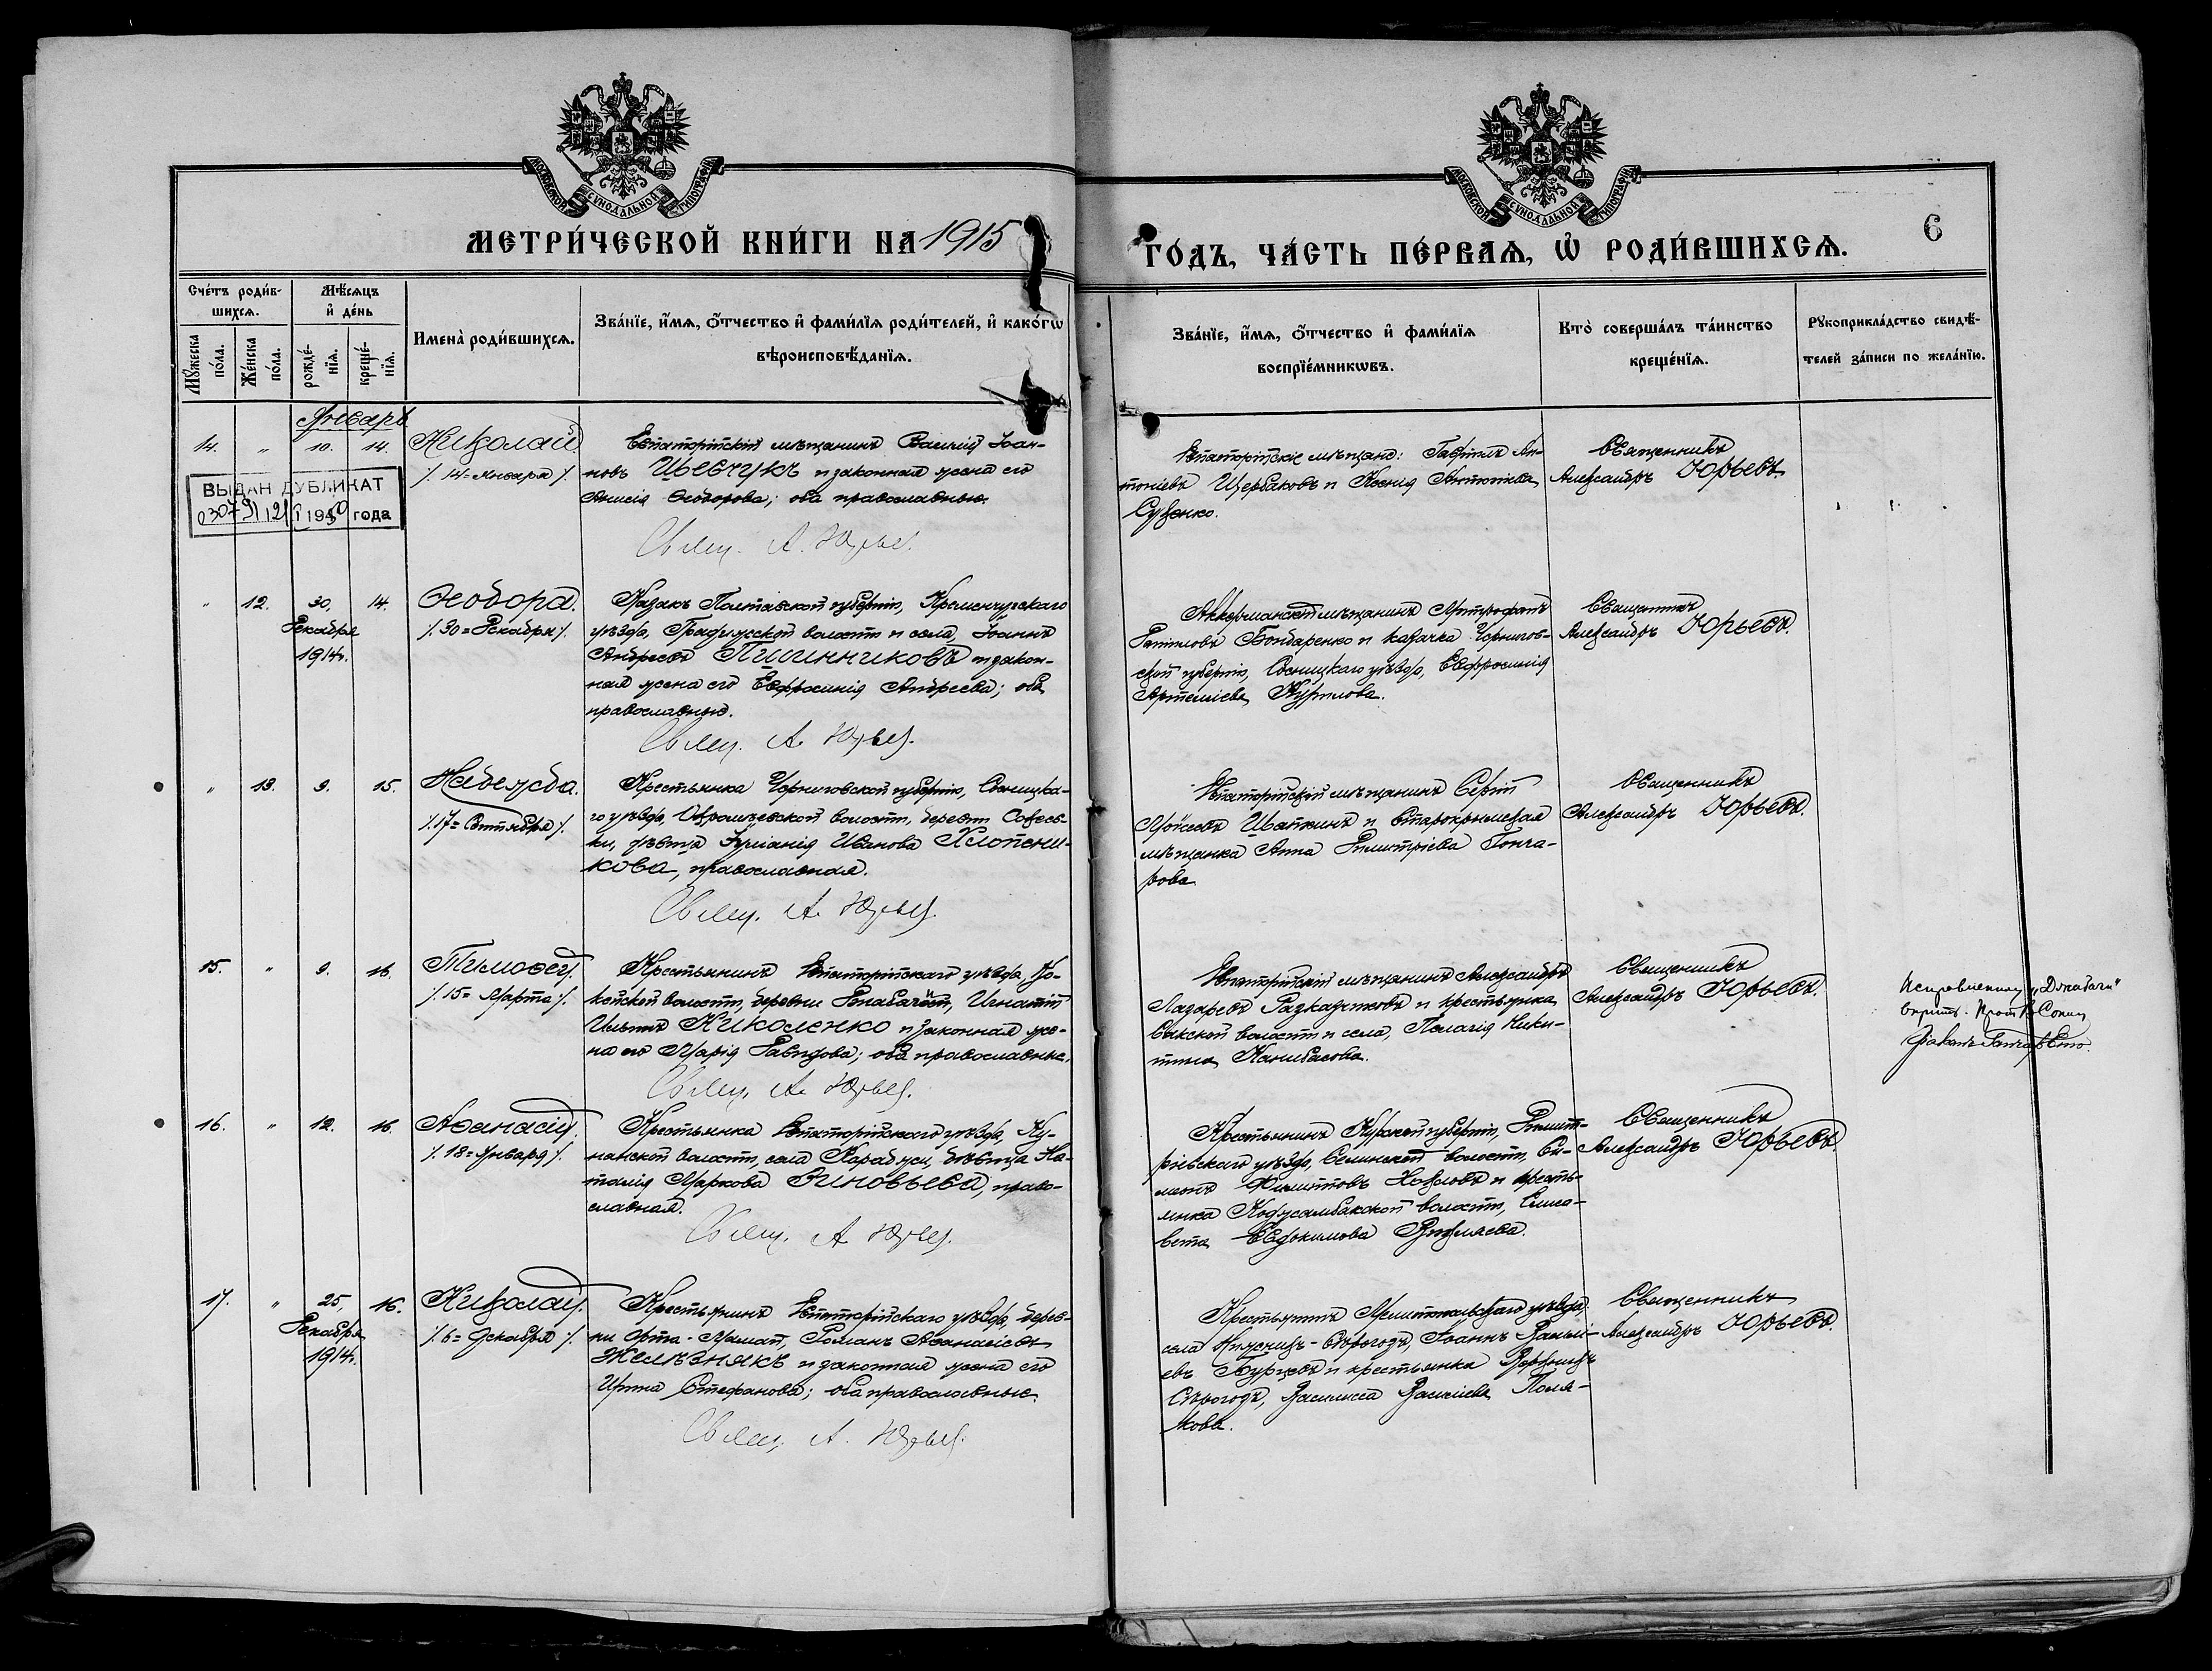 МЕТРИ́ЧЕСКОЙ КНИ́ГИ НА 1915
ГО́ДЪ, ЧА́СТЬ ПЕ́РВАѦ, Ѡ҆ РОДИ́ВШИХСѦ.
6
МОСКОВСКОЙ СѴНОДАЛЬНОЙ ТИПОГРАФІИ
МОСКОВСКОЙ СѴНОДАЛЬНОЙ ТИПОГРАФІИ
Сче́тъ роди́в-
шихсѧ.
Мꙋ́жеска по́ла.
Же́нска по́ла.
Мѣ́сѧцъ
и҆ де́нь
рожде́-
нїѧ.
креще́-
нїѧ.
Имена̀ роди́вшихсѧ.
Зва́нїе, и҆́мѧ, ѻ҆́тчество и҆ фами́лїѧ роди́телей, и҆ како́гѡ
вѣроисповѣ́данїѧ.
Зва́нїе, и҆́мѧ, ѻ҆́тчество и҆ фами́лїѧ
воспрїе́мникѡвъ.
Кто̀ соверша́лъ та́инство
креще́нїѧ.
Рꙋкоприкла́дство свидѣ́-
телей за́писи по жела́нїю.
Январь
14. " 10. 14. Николай.
/. 14= Января /.
Евпаторійскій мѣщанинъ Василій Іоан-
новъ Шевчукъ и законная жена его
Анисія Ѳеодорова; оба православные.
Свящ. А. Юрьев.
ВЫДАН ДУБЛИКАТ
1950 года
Евпаторійскіе мѣщане: Гавріилъ Ан-
тоніевъ Щербаковъ и Ксенія Антоніева
Сущенко.
Священникъ
Александръ Юрьевъ.
" 12. 30, 14. Ѳеодора.
Декабря
1914г.
/. 30= Декабря /.
Казакъ Полтавской губерніи, Кременчугскаго
уѣзда, волости и села, Іоаннъ
Андреевъ Пшинниковъ и закон-
ная жена его Евфросинія Андреева; оба
православные.
Свящ. А. Юрьев.
Аккерманскій мѣщанинъ Митрофанъ
Даніиловъ Бондаренко и казачка Чернигов-
ской губерніи, Сосницкаго уѣзда, Евфросинія
Артеміева Курилова.
Священникъ
Александръ Юрьевъ.
" 13. 9. 15. Надежда.
/. 17= Сентября /.
Крестьянка Черниговской губерніи, Сосницка-
го уѣзда, волости, деревни
ки, дѣвица Іуліанія Иванова Хлопени-
кова, православная.
Свящ. А. Юрьев.
Евпаторійскій мѣщанинъ Сергій
Моисеевъ Шапкинъ и старокрымская
мѣщанка Анна Димитріева Гонча-
рова.
Священникъ
Александръ Юрьевъ.
15. " 9. 16. Тимоѳей.
/. 15= Марта /.
Крестьянинъ Евпаторійскаго уѣзда,
волости, деревни Игнатій
Ильинъ Николенко и законная же-
на его Марія Давидова; оба православные.
Свящ. А. Юрьев.
Евпаторійскій мѣщанинъ Александръ
Лазаревъ и крестьянка
волости и села, Пелагія Ники-
тина Канибасова.
Священникъ
Александръ Юрьевъ.
Исправленному „Джабачи"
вѣрить.
16. " 12. 16. Аѳанасій.
/. 18= Января /.
Крестьянка Евпаторійскаго уѣзда, Ку-
нанской волости, села Карабуси, дѣвица На-
талія Маркова Зиновьева, право-
славная.
Свящ. А. Юрьев.
Крестьянинъ Курской губерніи, Димит-
ріевскаго уѣзда, Селинской волости, Си-
меонъ Филипповъ Козловъ и кресть-
янка волости, Елиса-
вета Евдокимова
Священникъ
Александръ Юрьевъ.
17. " 25, 16. Николай.
Декабря
1914г.
/. 6= Декабря /.
Крестьянинъ Евпаторійскаго уѣзда, дерев-
ни Орта-Мамай, Романъ Аѳанасіевъ
Желѣзнякъ и законная жена его
Ирина Стефанова; оба православные.
Свящ. А. Юрьев.
Крестьянинъ Мелитопольскаго уѣзда,
села Нижнихъ-Сѣрогозъ, Іоаннъ
евъ Бурцевъ и крестьянка Верхнихъ
Сѣрогозъ, Василисса Василіева Поля-
кова.
Священникъ
Александръ Юрьевъ.